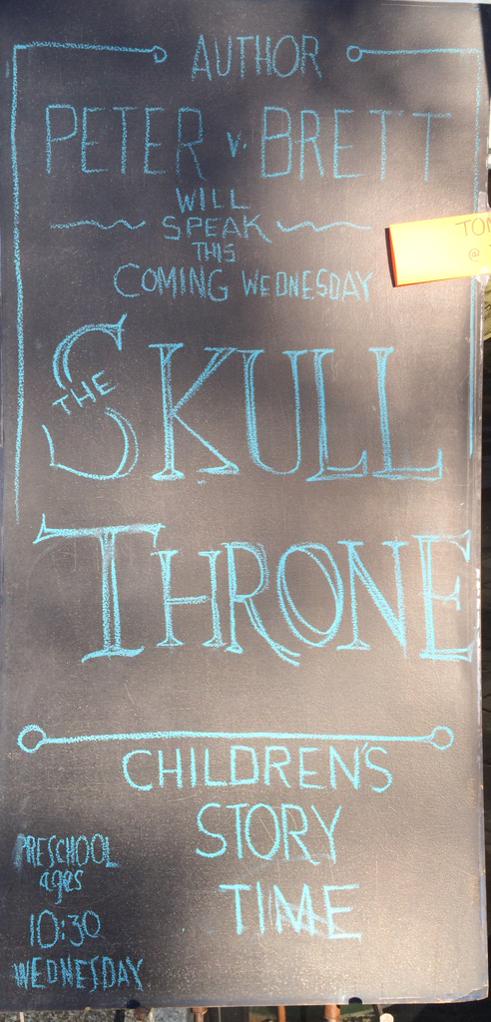 AUTHOR
PETER V. BRETT
WILL
SPEAK
THIS
COMING WEDNESDAY
THE
SKULL
THRONE
CHILDREN'S
STORY
TIME
PRESCHOOL
ages
10:30
WEDNESDAY
@